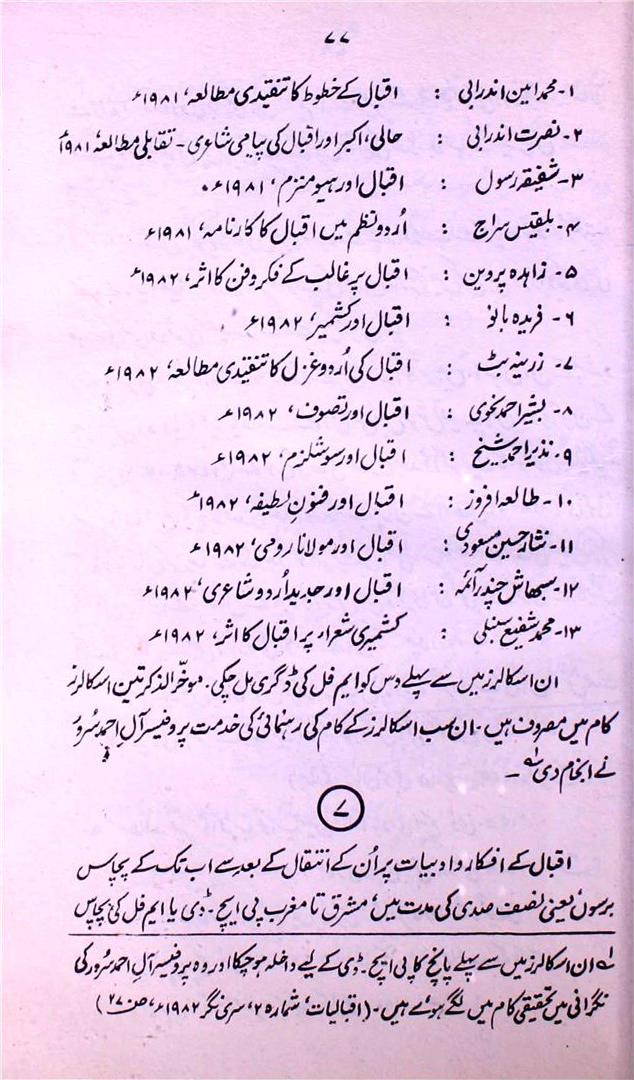 ۷۷
۱- محمد امین اندرابی : اقبال کے خطوط کا تنقیدی مطالعہ، ۱۹۸۱ء
۲- نصرت اندرابی : حالی، اکبر اور اقبال کی پیامی شاعری - تقابلی مطالعہ ۱۹۸۱ء
۳- شفیقہ رسول : اقبال اور ہیومنزم، ۱۹۸۱ء۔
۴- بلقیس سراج : اُردو نظم میں اقبال کا کارنامہ، ۱۹۸۱ء
۵- زاہدہ پروین : اقبال پر غالب کے فکر و فن کا اثر، ۱۹۸۲ء
۶- فریدہ بانو : اقبال اور کشمیر، ۱۹۸۲ء
۷- زرینہ بٹ : اقبال کی اُردو غزل کا تنقیدی مطالعہ، ۱۹۸۲ء
۸- بشیر احمد نحوی : اقبال اور تصوف، ۱۹۸۲ء
۹- نذیر احمد شیخ : اقبال اور سوشلزم، ۱۹۸۲ء
۱۰- طالعہ افروز : اقبال اور فنونِ لطیفہ، ۱۹۸۲ء
۱۱- نشار حسین مسعودی : اقبال اور مولانا رومی، ۱۹۸۲ء
۱۲- سبھاش چندر آئمہ : اقبال اور جدید اُردو شاعری، ۱۹۸۲ء
۱۳- محمد شفیع سنبلی : کشمیری شعراء پر اقبال کا اثر، ۱۹۸۲ء
ان اسکالرز میں سے پہلے دس کو ایم فل کی ڈگری مل چکی۔ موخّر الذکر تین اسکالرز
کام میں مصروف ہیں۔ ان سب اسکالرز کے کام کی رہنمائی کی خدمت پروفیسر آلِ احمد سُرور
نے انجام دی ۱؎ -
۷
اقبال کے افکار و ادبیات پر اُن کے انتقال کے بعد سے اب تک کے پچاس
برسوں، یعنی نصف صدی کی مدت میں، مشرق تا مغرب پی ایچ۔ ڈی یا ایم فل کی پچاس
۱؎ ان اسکالرز میں سے پہلے پانچ کا پی ایچ۔ ڈی کے لیے داخلہ ہو چکا اور وہ پروفیسر آلِ احمد سُرور کی
نگرانی میں تحقیقی کام میں لگے ہوئے ہیں۔ (اقبالیات، شمارہ ۲، سری نگر ۱۹۸۲ء، ص ۲۷)